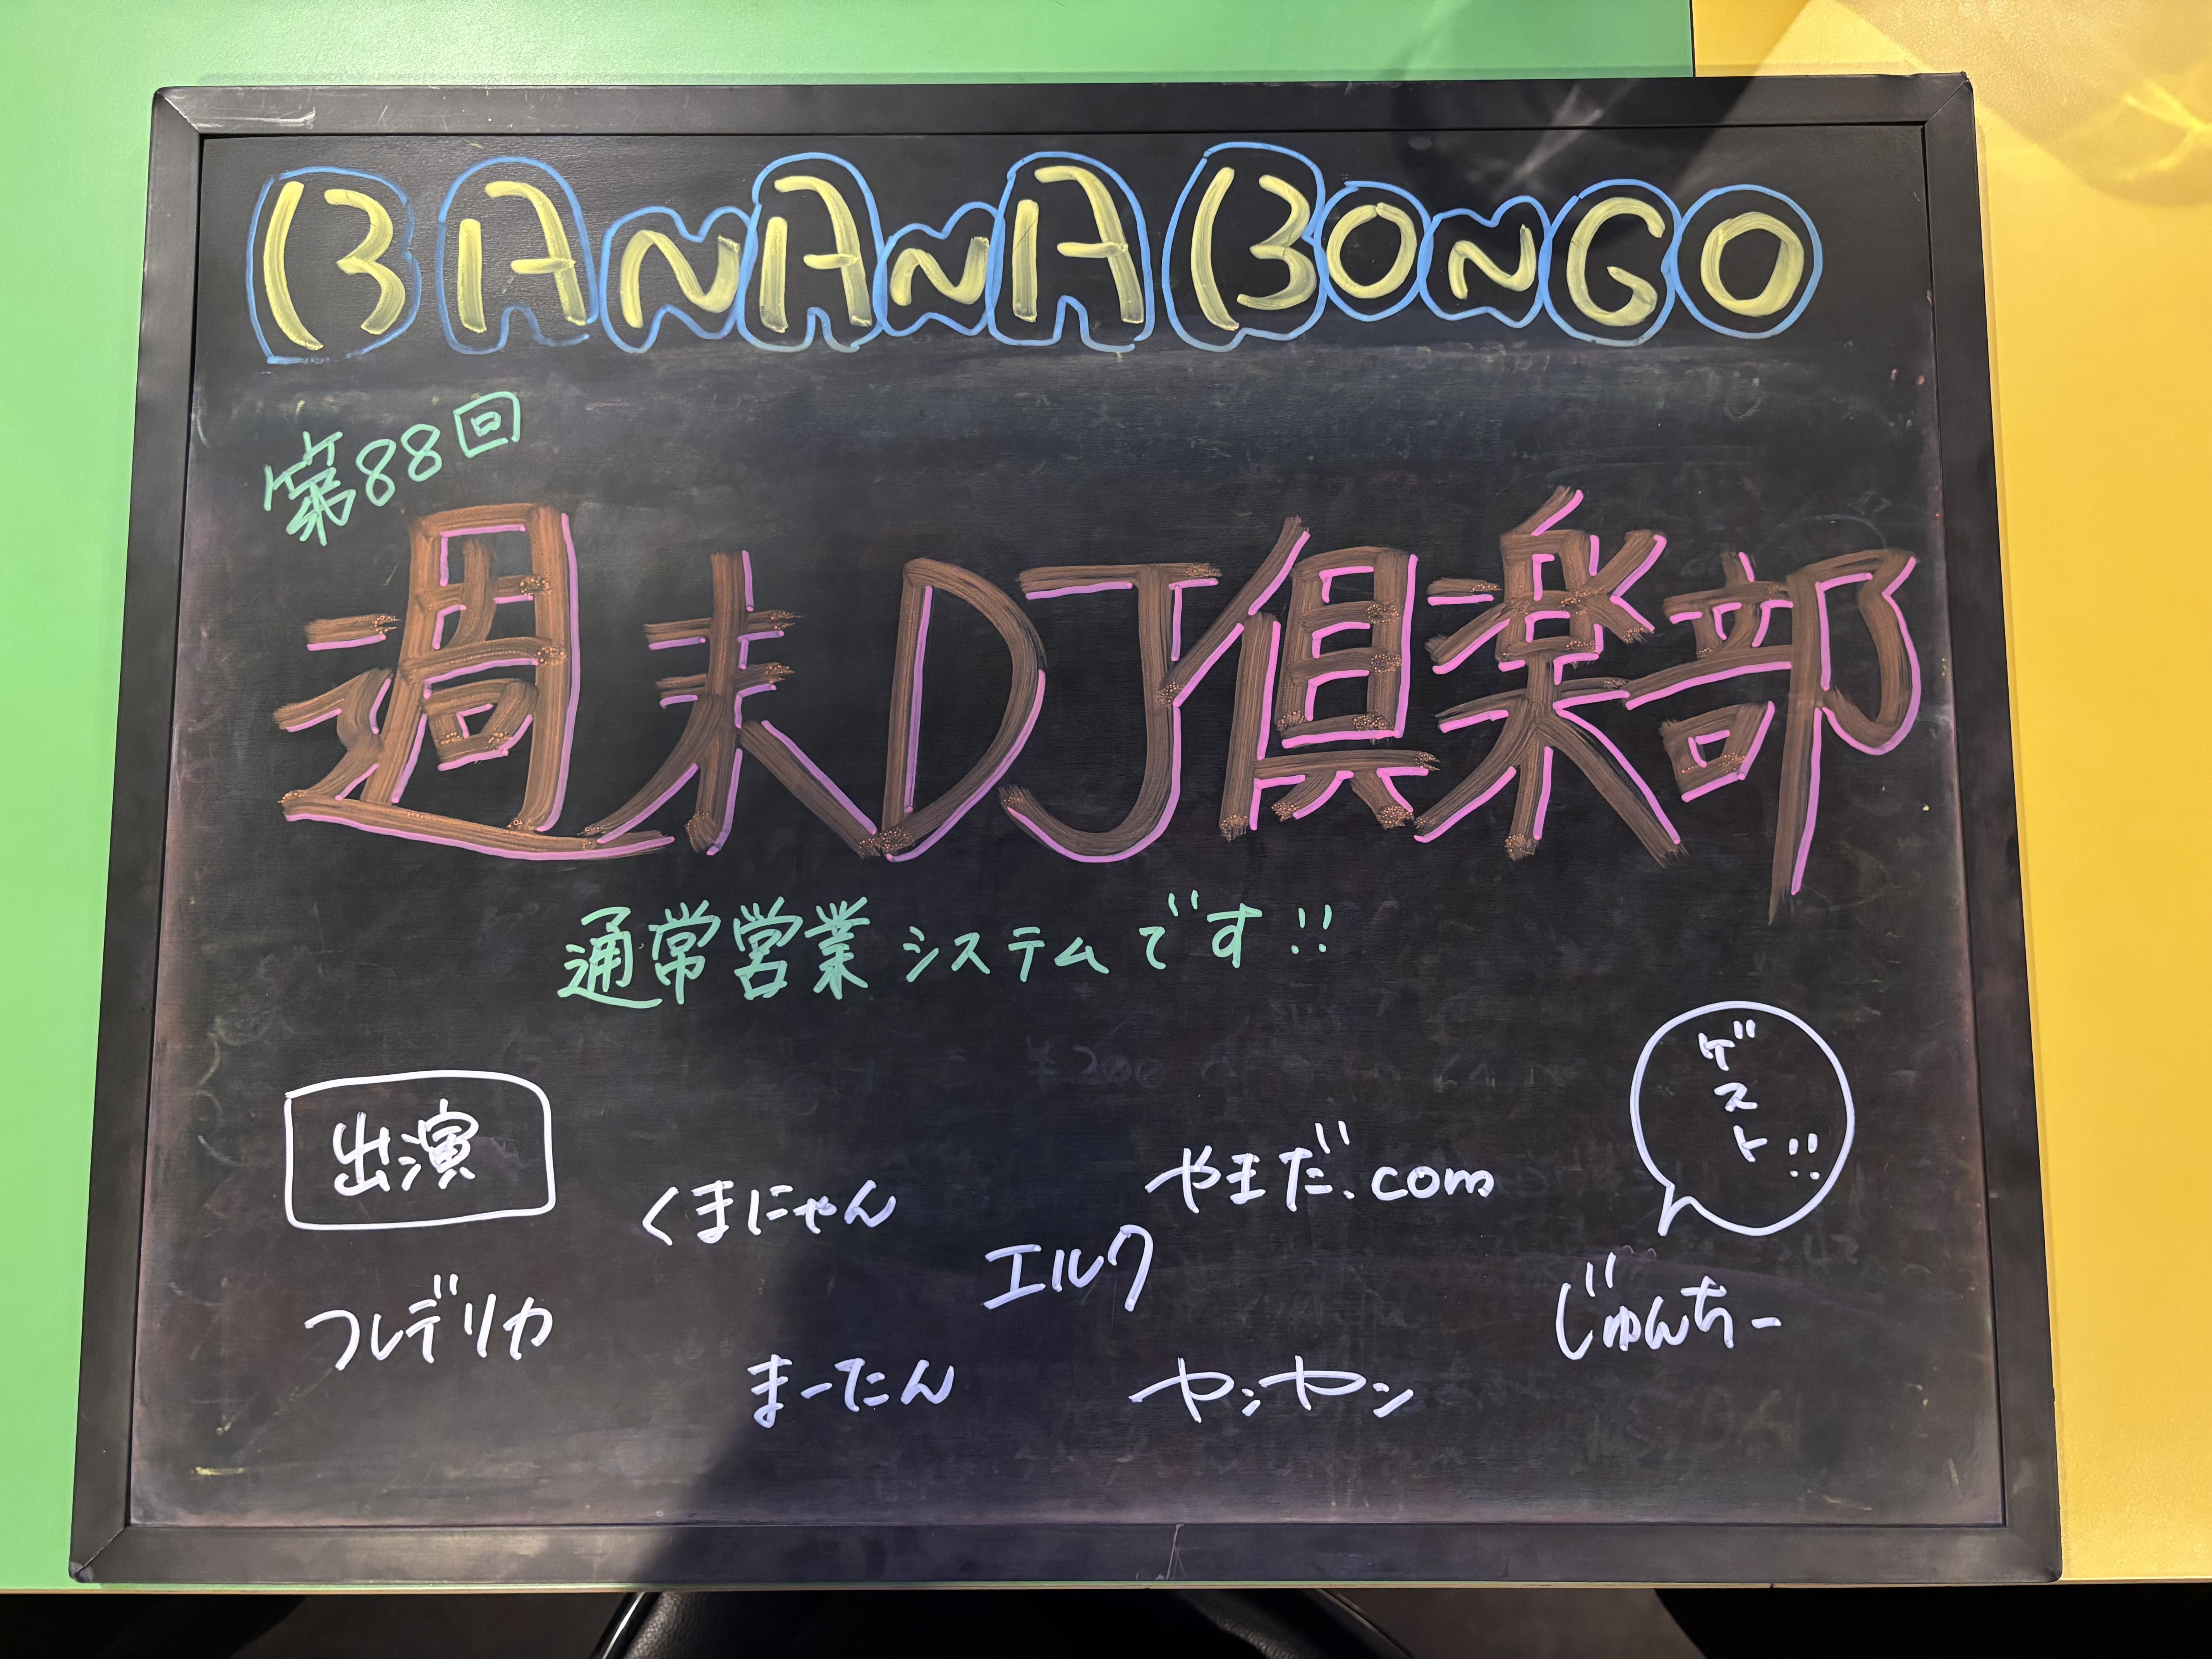 BANANA BONGO
第88回
週末DJ倶楽部
通常営業システムです!!
出演
ゲスト!!
くまにゃん
やまだ.com
エルク
フレデリカ
じゅんちー
まーたん
ヤンヤン